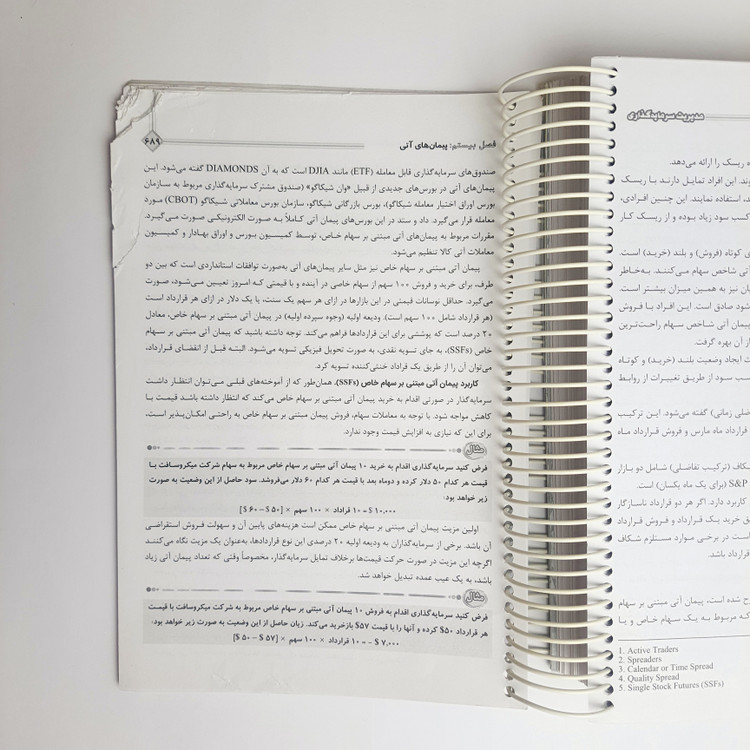 فصل بیستم: پیمان‌های آتی
۶۸۹
صندوق‌های سرمایه‌گذاری قابل معامله (ETF) مانند DJIA است که به آن DIAMONDS گفته می‌شود. این
پیمان‌های آتی در بورس‌های جدیدی از قبیل «وان شیکاگو» (صندوق مشترک سرمایه‌گذاری مربوط به سازمان
بورس اوراق اختیار معامله شیکاگو)، بورس بازرگانی شیکاگو، سازمان بورس معاملاتی شیکاگو (CBOT) مورد
معامله قرار می‌گیرد. داد و ستد در این بورس‌های پیمان آتی کاملاً به صورت الکترونیکی صورت می‌گیرد.
مقررات مربوط به پیمان‌های آتی مبتنی بر سهام خاص، توسط کمیسیون بورس و اوراق بهادار و کمیسیون
معاملات آتی کالا تنظیم می‌شود.
پیمان آتی مبتنی بر سهام خاص نیز مثل سایر پیمان‌های آتی به‌صورت توافقات استانداردی است که بین دو
طرف، برای خرید و فروش ۱۰۰ سهم از سهام خاصی در آینده و با قیمتی کـه امـروز تعیـین مـی‌شـود، صورت
می‌گیرد. حداقل نوسانات قیمتی در این بازارها در ازای هر سهم یک سنت، یا یک دلار در ازای هر قرارداد است
(هر قرارداد شامل ۱۰۰ سهم است). ودیعه اولیه (وجوه سپرده اولیه) در پیمان آتی مبتنی بر سهام خاص، معادل
۲۰ درصد است که پوششی برای این قراردادها فراهم می‌کند. توجه داشته باشید که پیمان آتی مبتنی بر سـهام
خاص (SSFs)، به جای تسویه نقدی، به صورت تحویل فیزیکی تسویه می‌شود. البته قبل از انقضای قرارداد،
می‌توان آن را از طریق یک قراداد خنثی‌کننده تسویه کرد.
کاربرد پیمان آتی مبتنی بر سهام خاص (SSFs). همان‌طور که از آموخته‌های قبلـی مـی‌تـوان انتظـار داشـت
سرمایه‌گذار در صورتی اقدام به خرید پیمان آتی مبتنی بر سهام خاص می‌کند که انتظار داشته باشد قیمـت بـا
کاهش مواجه شود. با توجه به معاملات سهام، فروش پیمان مبتنی بر سهام خاص به راحتـی امکـان‌پـذیر اسـت،
برای این که نیازی به افزایش قیمت وجود ندارد.
مثال
فرض کنید سرمایه‌گذاری اقدام به خرید ۱۰ پیمان آتی مبتنی بر سهام خاص مربوط به سهام شرکت میکروسافـت بـا
قیمت هر کدام ۵۰ دلار کرده و دوماه بعد با قیمت هر کدام ۶۰ دلار می‌فروشد. سود حاصل از این وضعیت به صورت
زیر خواهد بود:
۱۰,۰۰۰ $ = ۱۰ قرارداد × ۱۰۰ سهم × [۵۰ $ – ۶۰ $]
اولین مزیت پیمان آتی مبتنی بر سهام خاص ممکن است هزینه‌های پایین آن و سهولت فـروش استقراضـی
آن باشد. برخی از سرمایه‌گذاران به ودیعه اولیه ۲۰ درصدی این نوع قراردادها، به‌عنوان یک مزیت نگاه می‌کننـد
اگرچه این مزیت در صورت حرکت قیمت‌ها برخلاف تمایل سرمایه‌گذار، مخصوصاً وقتی که تعداد پیمان آتی زیاد
باشد، به یک عیب عمده تبدیل خواهد شد.
مثال
فرض کنید سرمایه‌گذاری اقدام به فروش ۱۰ پیمان آتی مبتنی بر سهام خاص مربوط به شرکت میکروسافت با قیمـت
هر قرارداد ۵۰$ کرده و آنها را با قیمت ۵۷$ بازخرید می‌کند. زیان حاصل از این وضعیت به صورت زیر خواهد بود:
۷,۰۰۰ $ – = ۱۰ قرارداد × ۱۰۰ سهم × [۵۷ $ – ۵۰ $]
مدیریت سرمایه‌گذاری
ه ریسک را ارائه می‌دهد.
وند. این افراد تمایل دارنـد بـا ریسـک
د، استفاده نمایند. این چنـین افـرادی،
کسب سود زیاد بوده و از ریسـک کـار
ی کوتاه (فروش) و بلند (خریـد) اسـت.
آتی شاخص سهام مـی‌کننـد. بـه‌خـاطر
ان نیز به همین میزان بیشتر اسـت.
شود صادق است. این افـراد بـا فـروش
پیمان آتی شاخص سـهام راحت‌تـرین
از آن بهره گرفت.
ث ایجاد وضعیت بلنـد (خریـد) و کوتـاه
سب سـود از طریـق تغییـرات از روابـط
ضلی زمانی) گفته می‌شود. ایـن ترکیـب
قرارداد ماه مارس و فروش قـرارداد مـاه
کاف (ترکیب تفاضلی) شامل دو بـازار
S&P (برای یک ماه یکسان) است.
کاربرد دارد. اگر هر دو قرارداد ناسازگار
ق خرید یـک قـرارداد و فـروش قـرارداد
است در برخـی مـوارد مسـتلزم شـکاف
قرارداد باشد.
ح شده است، پیمان آتی مبتنی بر سهام
کـه مربـوط بـه یـک سـهام خـاص و یـا
1. Active Traders
2. Spreaders
3. Calendar or Time Spread
4. Quality Spread
5. Single Stock Futures (SSFs)